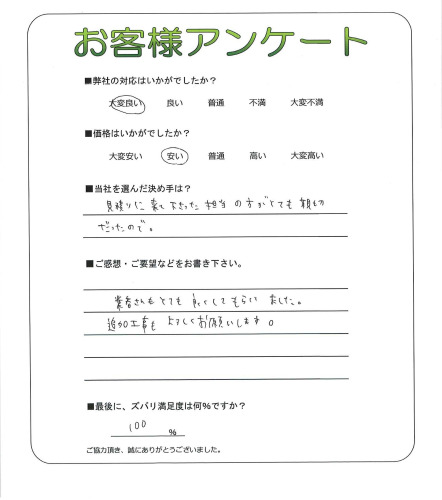 お客様アンケート
■弊社の対応はいかがでしたか？
大変良い 良い 普通 不満 大変不満
■価格はいかがでしたか？
大変安い 安い 普通 高い 大変高い
■当社を選んだ決め手は？
見積りに来て下さった担当の方がとても親切
だったので。
■ご感想・ご要望などをお書き下さい。
業者さんもとても良くしてもらいました。
追加工事もよろしくお願いします。
■最後に、ズバリ満足度は何％ですか？
100 ％
ご協力頂き、誠にありがとうございました。